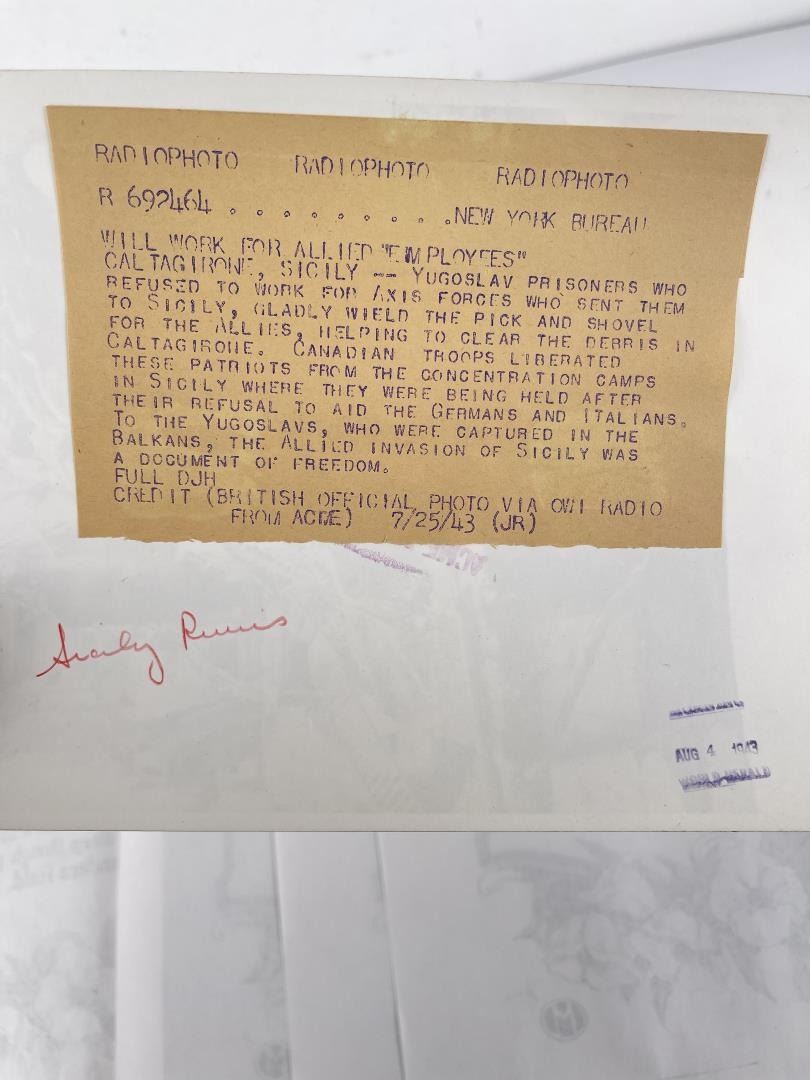 RADIOPHOTO RADIOPHOTO RADIOPHOTO
R 692464 . . . . . . . . . .NEW YORK BUREAU
WILL WORK FOR ALLIED "EMPLOYEES"
CALTAGIRONE, SICILY -- YUGOSLAV PRISONERS WHO
REFUSED TO WORK FOR AXIS FORCES WHO SENT THEM
TO SICILY, GLADLY WIELD THE PICK AND SHOVEL
FOR THE ALLIES, HELPING TO CLEAR THE DEBRIS IN
CALTAGIRONE. CANADIAN TROOPS LIBERATED
THESE PATRIOTS FROM THE CONCENTRATION CAMPS
IN SICILY WHERE THEY WERE BEING HELD AFTER
THEIR REFUSAL TO AID THE GERMANS AND ITALIANS.
TO THE YUGOSLAVS, WHO WERE CAPTURED IN THE
BALKANS, THE ALLIED INVASION OF SICILY WAS
A DOCUMENT OF FREEDOM.
FULL DJH
CREDIT (BRITISH OFFICIAL PHOTO VIA OWI RADIO
FROM ACME) 7/25/43 (JR)
ACME
Sicily Ruins
AUG 4 1943
WORLD HERALD